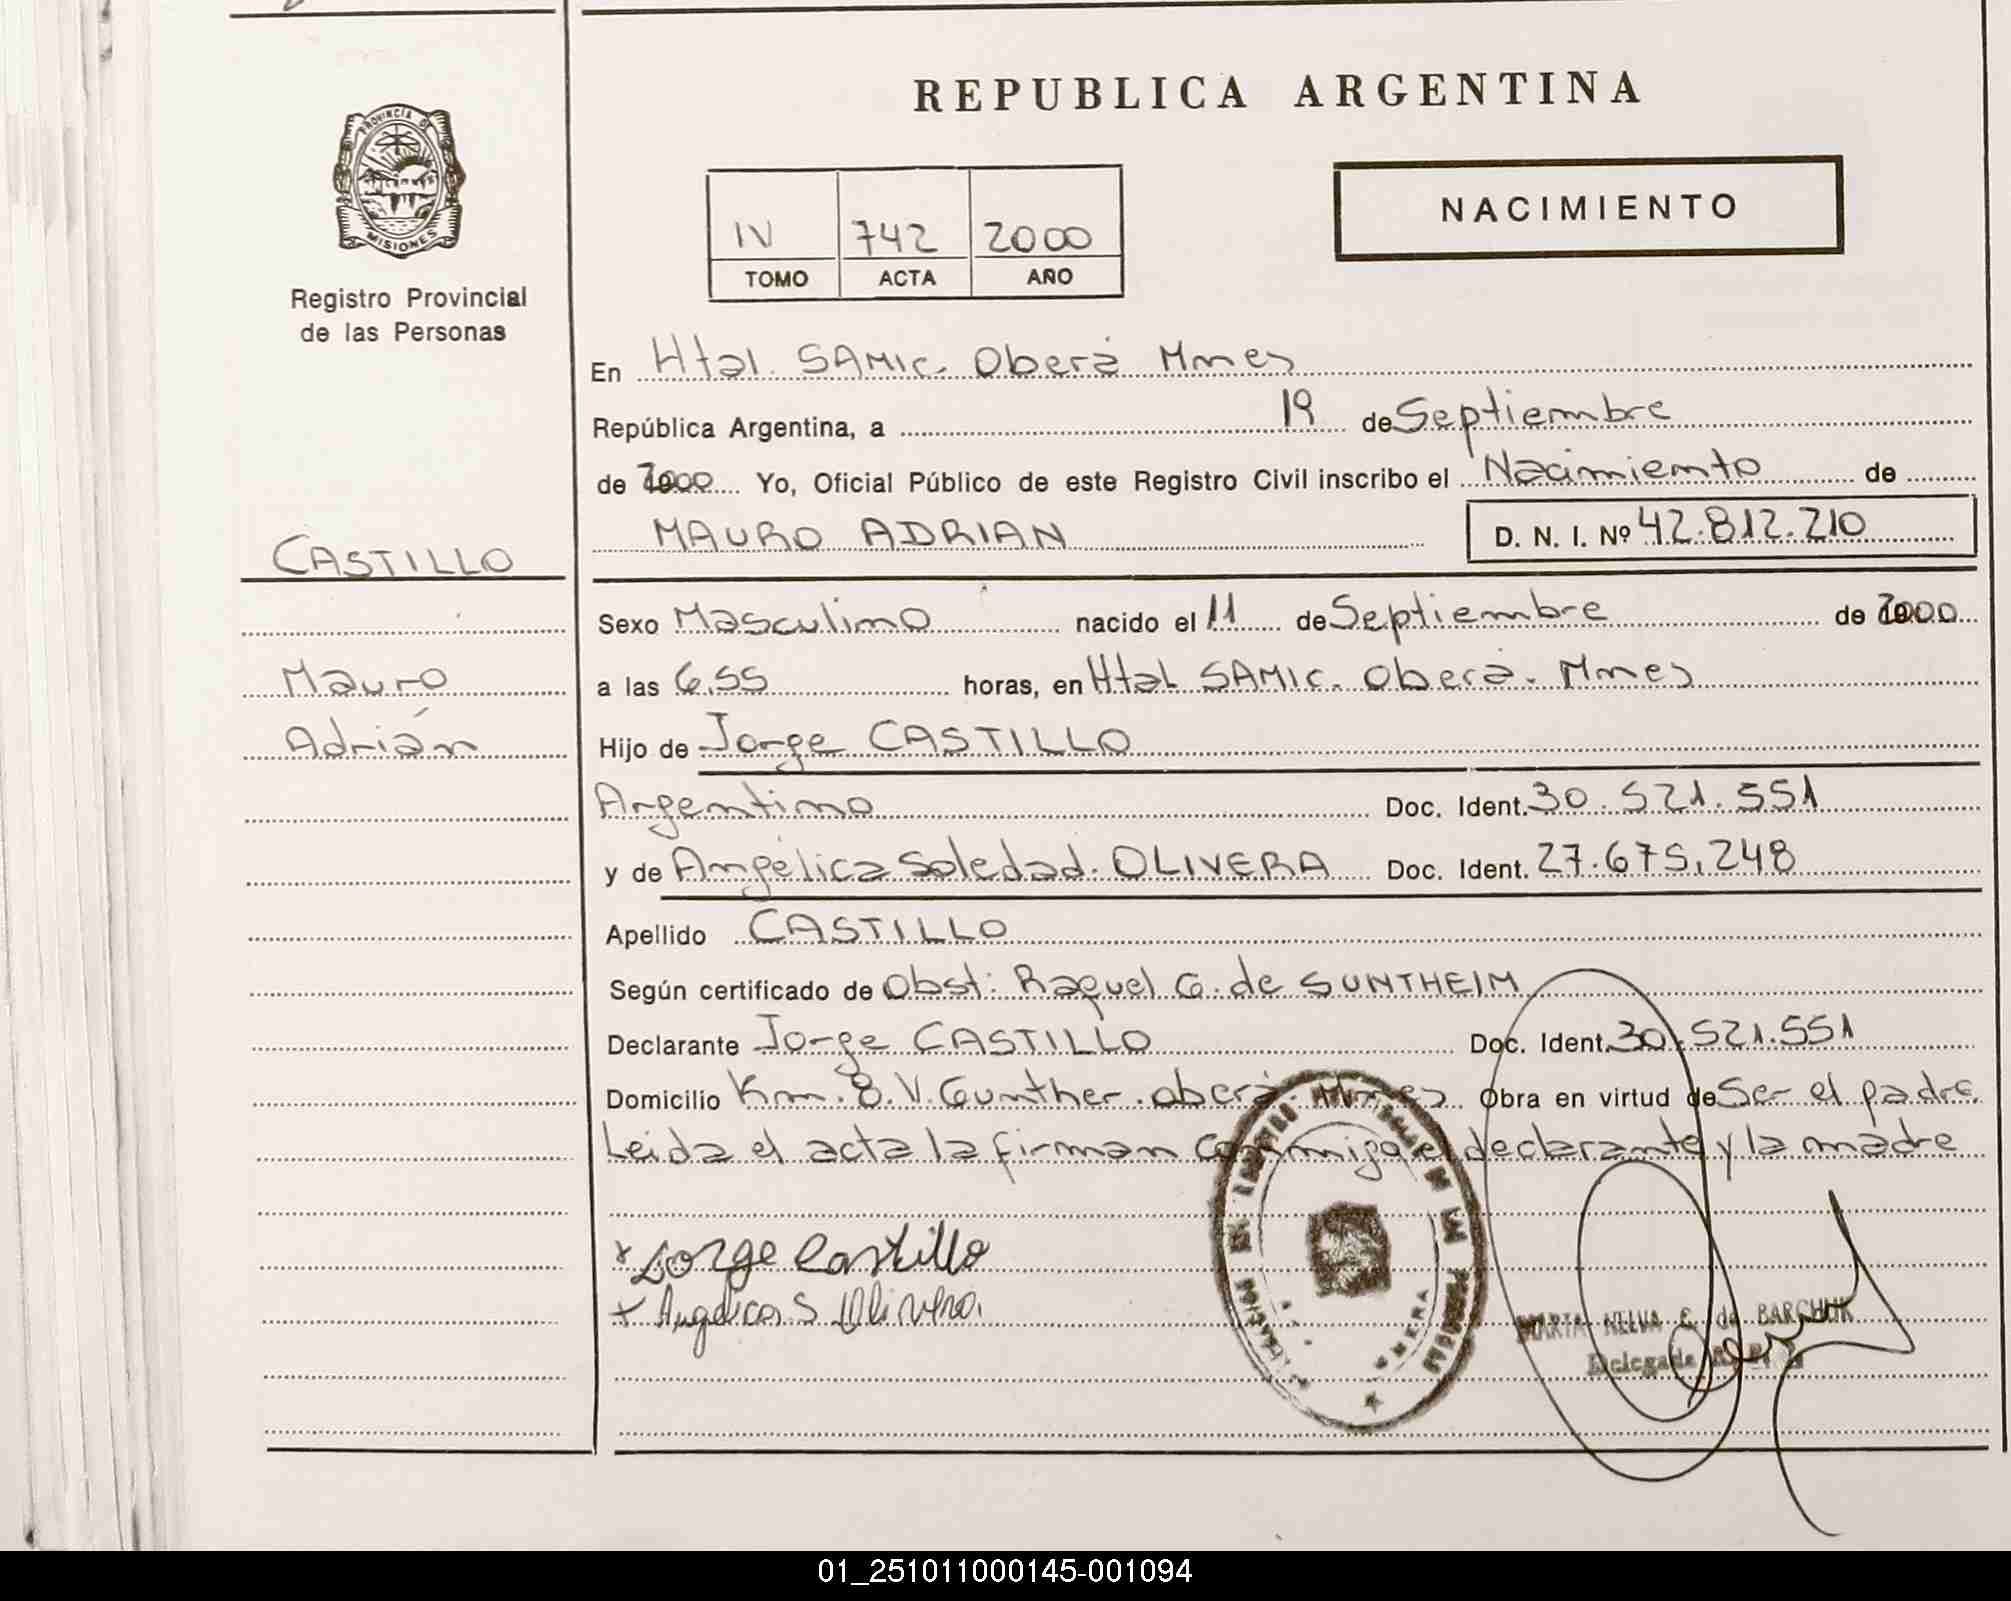 PROVINCIA DE
MISIONES
Registro Provincial
de las Personas
CASTILLO
Mauro
Adrián
REPUBLICA ARGENTINA
IV 742 2000
TOMO ACTA AÑO
NACIMIENTO
En Htal. SAMIC. Oberá Mnes
República Argentina, a 19 de Septiembre
de 2000 Yo, Oficial Público de este Registro Civil inscribo el Nacimiento de
MAURO ADRIAN D. N. I. Nº 42.812.210
Sexo Masculino nacido el 11 de Septiembre de 2000
a las 6.55 horas, en Htal SAMIC. Oberá. Mnes
Hijo de Jorge CASTILLO
Argentino Doc. Ident. 30.521.551
y de Angélica Soledad. OLIVERA Doc. Ident. 27.675.248
Apellido CASTILLO
Según certificado de Obst: Raquel G. de SUNTHEIM
Declarante Jorge CASTILLO Doc. Ident. 30.521.551
Domicilio Km. 8. V. Gunther. Oberá Mnes Obra en virtud de Ser el padre
Leida el acta la firman conmigo el declarante y la madre
x Jorge Castillo
x Angelica S Olivera
MARTA NELVA E. de BARCHUK
Delegada
01_251011000145-001094